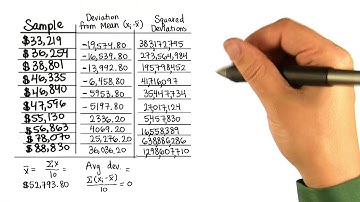 Sample Deviation from Mean (xᵢ-x̄) Squared Deviations
$33,219 -19,574.80 383172795
$36,254 -16,539.80 273,564,984
$38,801 -13,992.80 195,798,452
$46,335 -6,458.80 41716097
$46,840 -5953.80 35447734
$47,596 -5197.80 27017124
$55,130 2336.20 5457830
$56,863 4069.20 16558389
$78,070 25,276.20 638886286
$88,830 36,036.20 1298607710
x̄ = Σx/10 = Avg. dev. =
$52,793.80 Σ(xᵢ-x̄)/10 = 0